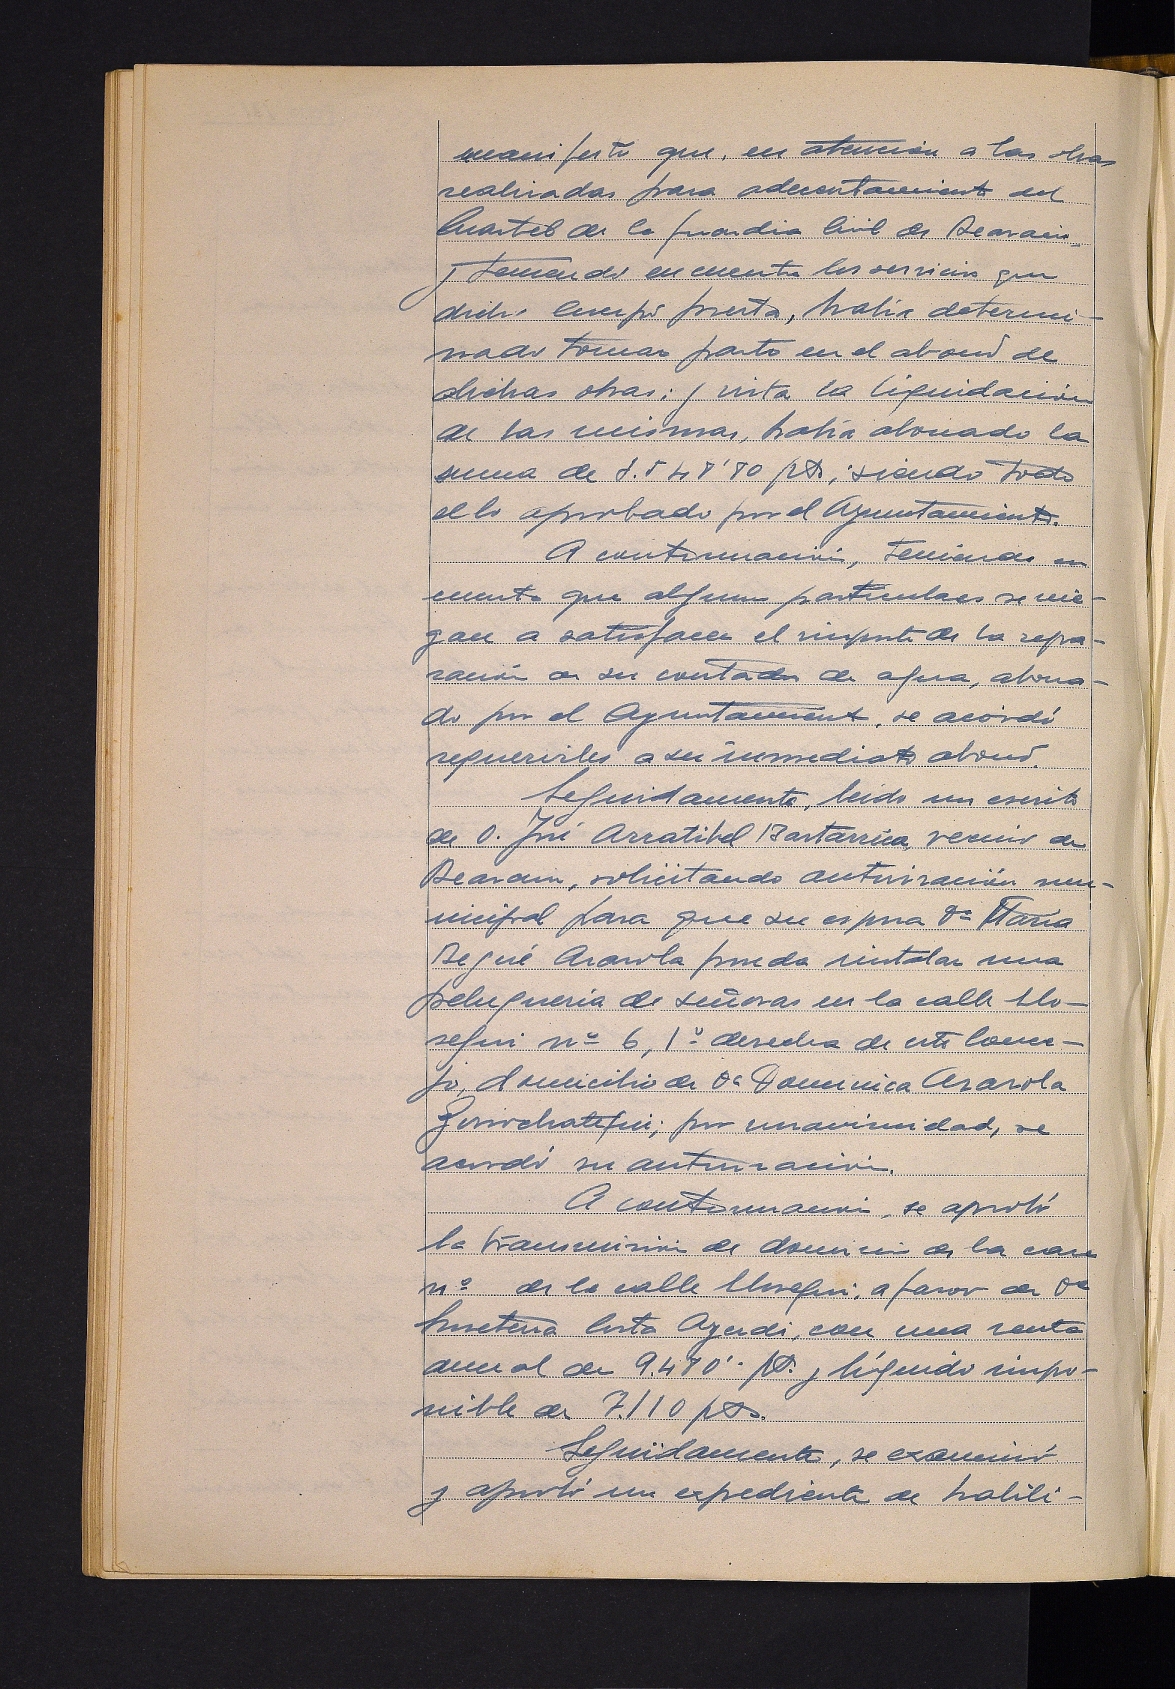 manifestó que, en atención a las obras
realizadas para adecentamiento del
Cuartel de la Guardia Civil de Beasain
y teniendo en cuenta los servicios que
dicho Cuerpo presta, había determi-
nado tomar parte en el abono de
dichas obras; y vista la liquidación
de las mismas, había abonado la
suma de pts; siendo todo
ello aprobado por el Ayuntamiento.
A continuación, teniendo en
cuenta que algunos particulares se nie-
gan a satisfacer el importe de la repa-
ración de su contador de agua, abona-
do por el Ayuntamiento, se acordó
requerirles a su inmediato abono.
Seguidamente, leido un escrito
de D. José Arratibel Bastarrica, vecino de
Beasain, solicitando autorización mu-
nicipal para que su esposa Dª María
Begué Ararola pueda instalar una
peluquería de señoras en la calle Llo-
segui nº 6, 1º derecha de este Conce-
jo, domicilio de Dª Dominica Ararola
Goirochategui; por unanimidad, se
acordó su autorización.
A continuación, se aprobó
la transmisión de dominio de la casa
nº de la calle Llosegui, a favor de Dª
Costa Ayerdi, con una renta
anual de 9.480'- pts. y líquido impo-
nible de 7.110 pts.
Seguidamente, se examinó
y aprobó un expediente de habili-